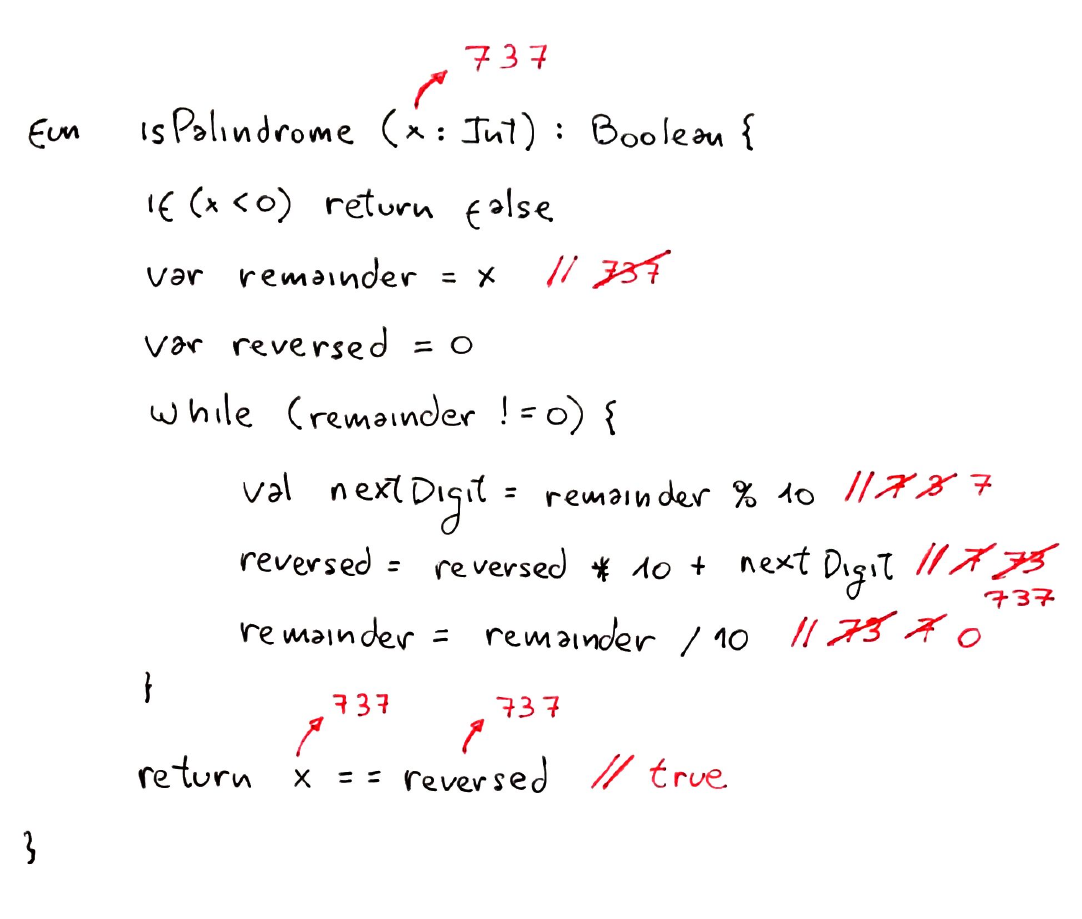 737
fun isPalindrome (x: Int) : Boolean {
if (x < 0) return false
var remainder = x // 737
var reversed = 0
while (remainder != 0) {
val nextDigit = remainder % 10 // 7 3 7
reversed = reversed * 10 + nextDigit // 7 73
737
remainder = remainder / 10 // 73 7 0
}
737 737
return x == reversed // true
}